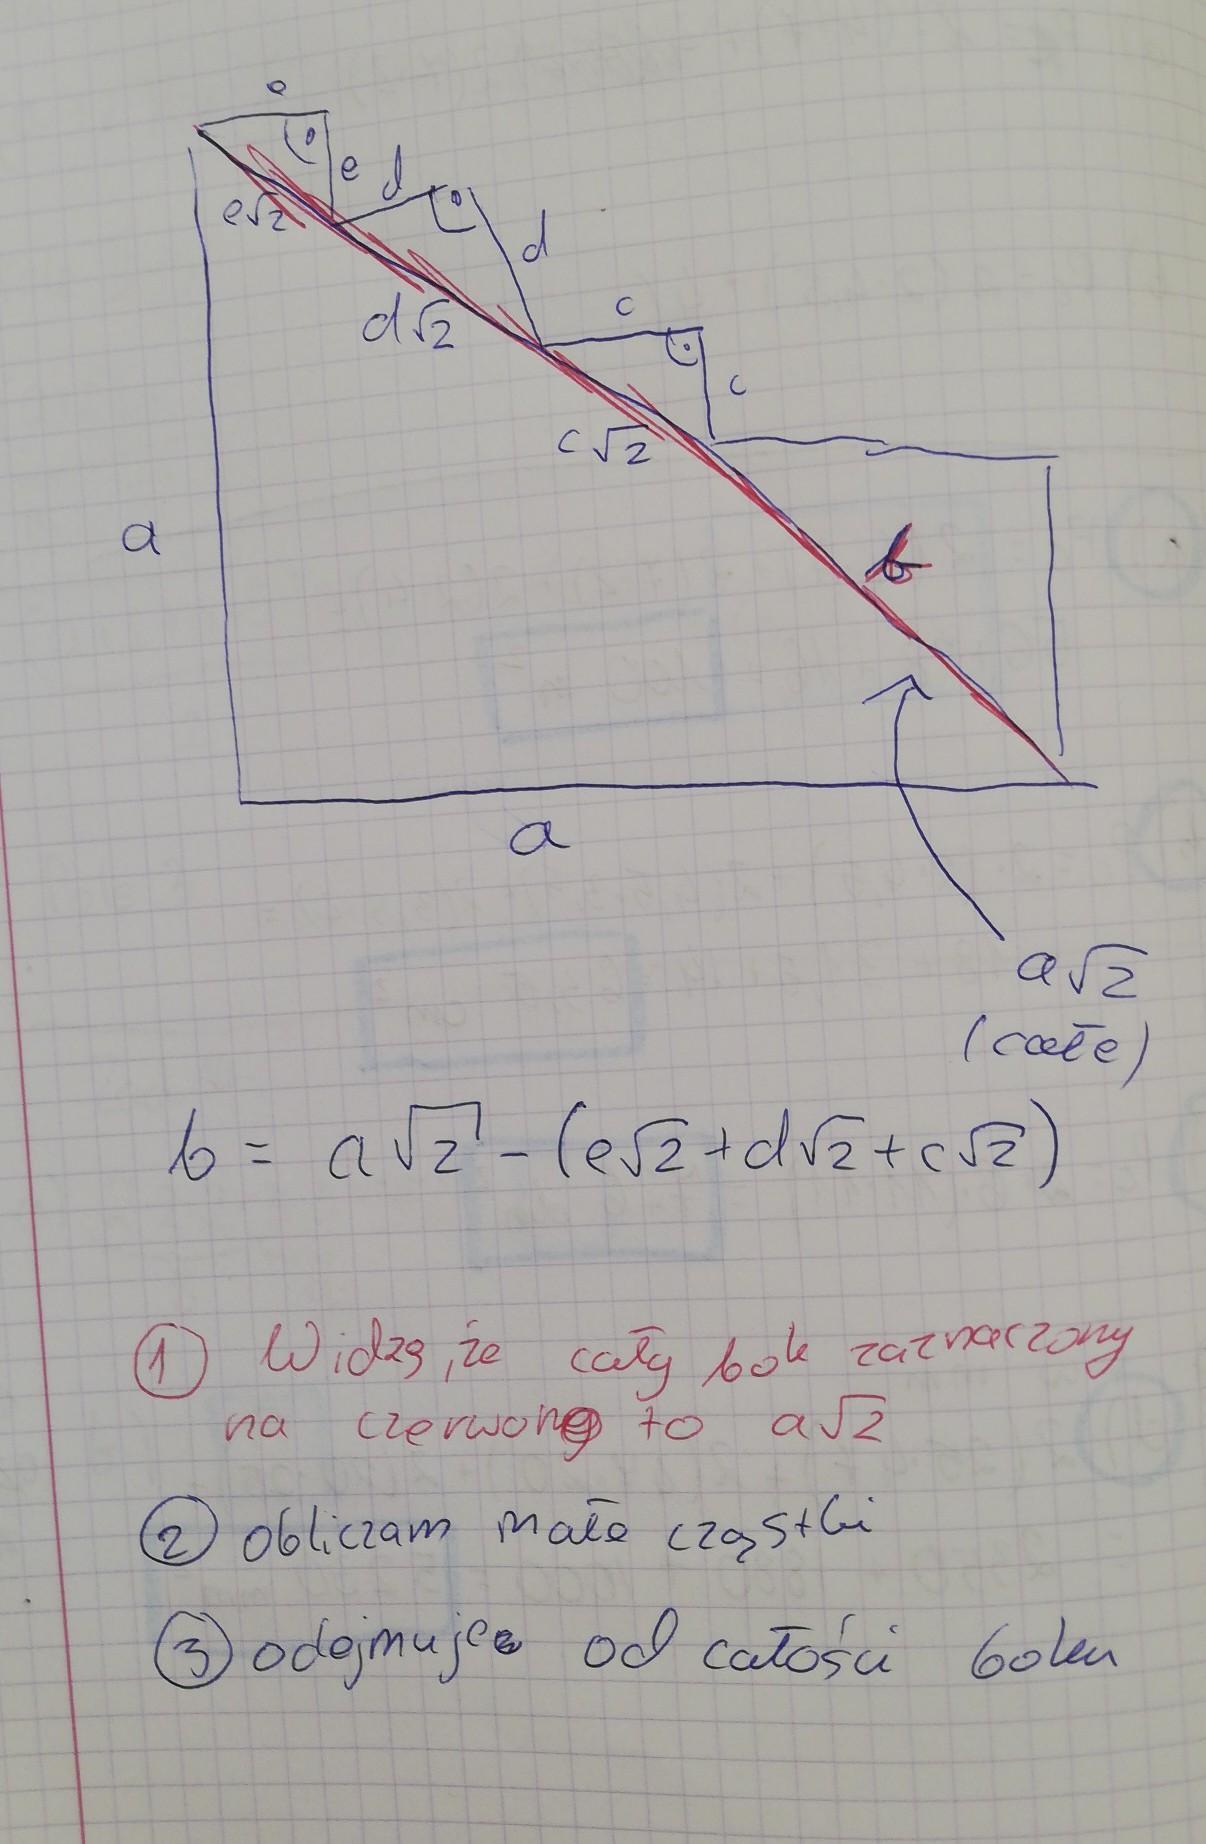 e
e
d
e√2
d
d√2
c
c
c√2
a
b
a
a√2
(całe)
b = a√2 - (e√2+d√2+c√2)
① Widzę, że cały bok zaznaczony
na czerwono to a√2
② obliczam małe cząstki
③ odejmuję od całości boku